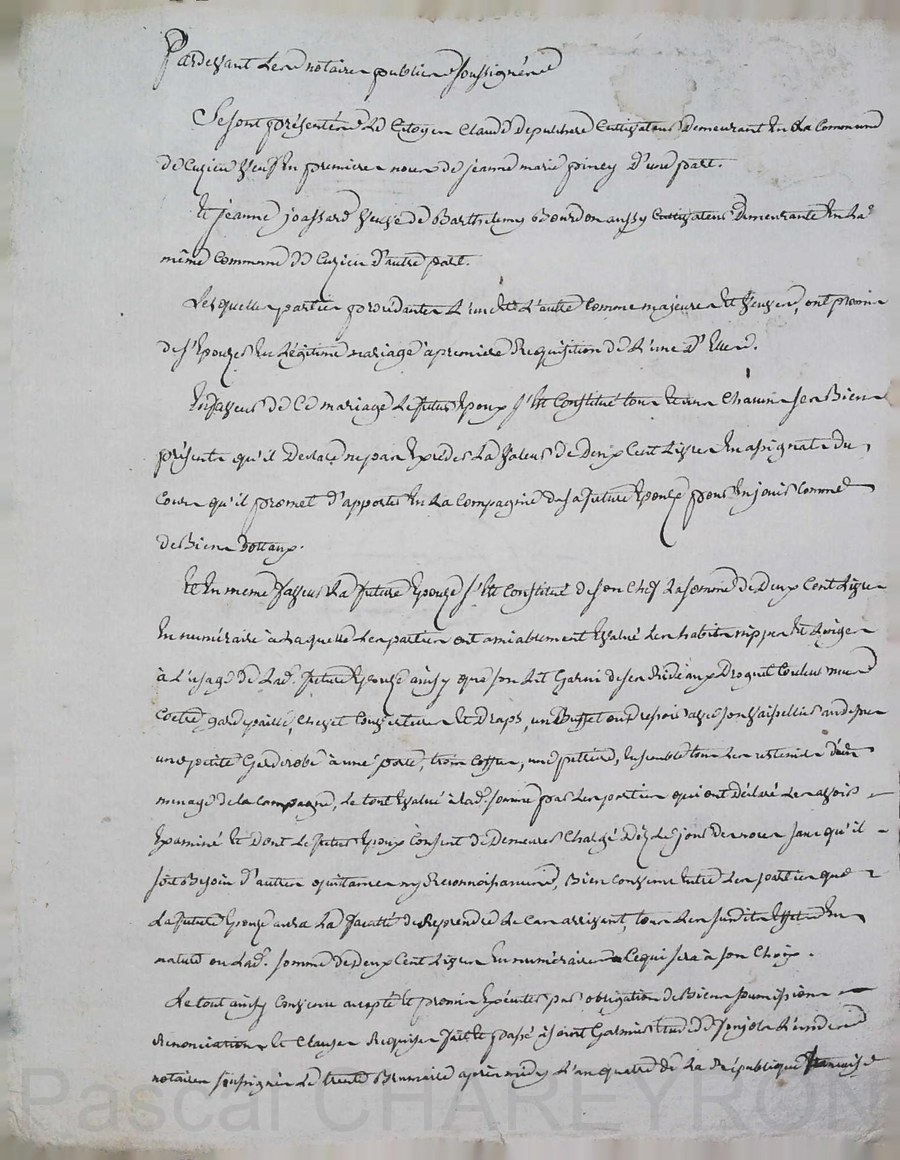 Pardevant Les notaires publics soussignés
Se sont présentés Le Citoyen Claude Depulchere Cultivateur Demeurant En La Commune
de Cuzieu Veuf En premieres noces de jeanne marie piney D'une part.
Et jeanne joassard Veuve de Barthelemy Bourdon aussy Cultivateur Demeurante En La
même Commune de Cuzieu D'autre part.
Lesquelles parties procédantes L'un et L'autre Comme majeures et Veuves, ont promis
de s'Epouzer En Légitime mariage a premiere Requisition de L'une D'Elles.
En faveur de Ce mariage Le futur Epoux s'est Constitué tous et uns Chacuns ses Biens
présents qu'il Déclare ne pas Excéder La Valeur de Deux Cent Livres En assignats du
Cours qu'il promet d'apporter En La Compagnie de sa future Epouze pour En jouir Comme
de Biens dottaux.
Et En meme faveur La future Epouze s'est Constitué de son Chef La somme de Deux Cent Livres
En numéraire à Laquelle Les parties ont amiablement Evalué Les habits nippes Et Linges
à L'usage de Lad. future Epouze ainsy que son Lit Garni de ses Rideaux Droguet Couleur
Coetre gardepaille, Chevet Couverture et Draps, un Buffet ou Dressoir avec son Vaisellier au dessus
une petite Garderobe à une porte, trois Coffres, une petriere, Ensemble tous Les ustenciles d'un
menage de la Campagne, Le tout Evalué à lad. somme par Les parties qui ont déclaré Les avoir
Examiné Et Dont Le futur Epoux Consent de Demeurer Chargé Dèz Le jour des noces sans qu'il
soit Besoin d'autres quittances ny Reconnoissances, Bien Convenu Entre Les parties que
La future Epouze aura La faculté de Reprendre Le Cas arrivant, tous Les susdits Effets En
nature ou Lad. somme de Deux Cent Livres En numéraire Ce qui sera à son Choix.
Le tout ainsy Convenu accepté et promis Executer par obligation de Biens soumissions
Renonciations et Clauses Requises fait et passé à Saint Galmier Etude de L'un des
notaires soussignés Le trente Brumaire après midy L'an quatre de La République francaise
Pascal CHAREYRON